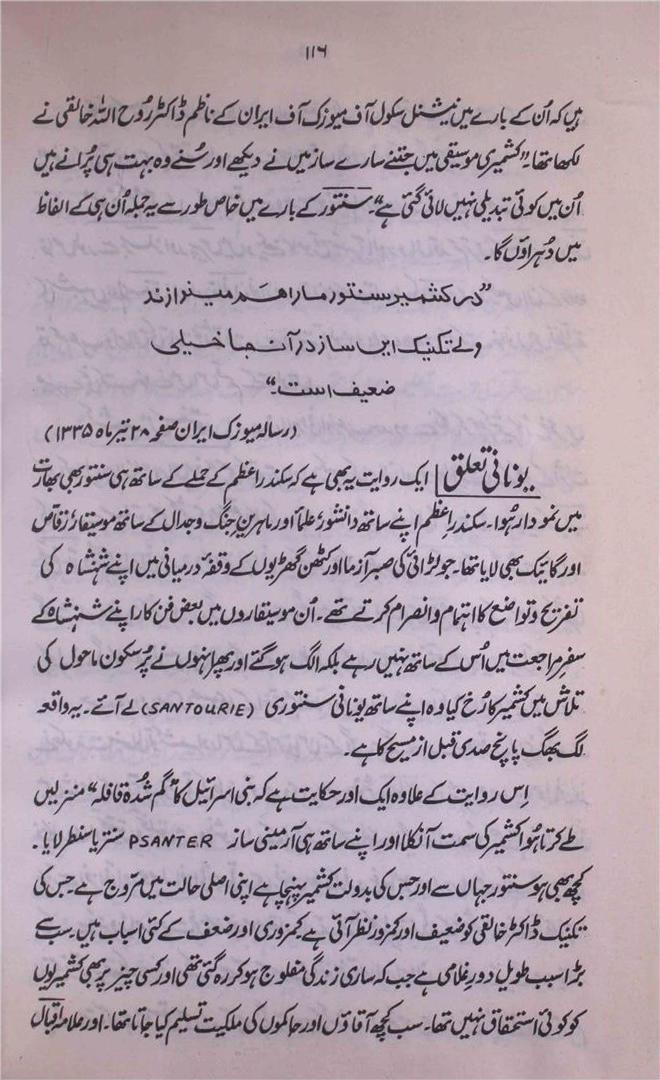 ۱۱۶
ہیں کہ اُن کے بارے میں نیشنل سکول آف میوزک آف ایران کے ناظم ڈاکٹر رُوح اللہ خالقی نے
لکھا تھا۔ "کشمیری موسیقی میں جتنے سارے ساز میں نے دیکھے اور سُنے وہ بہت ہی پُرانے ہیں
اُن میں کوئی تبدیلی نہیں لائی گئی ہے"۔ سنتور کے بارے میں خاص طور سے یہ جملہ اُن ہی کے الفاظ
میں دُہراؤں گا۔
"در کشمیر سنتور ما را هم مینوازند
ولے تکنیک این ساز در آنجا خیلی
ضعیف است۔"
(رسالہ میوزک ایران صفحہ ۲۸ تیر ماہ ۱۳۳۵)
یونانی تعلق | ایک روایت یہ بھی ہے کہ سکندر اعظم کے حملے کے ساتھ ہی سنتور بھی بھارت
میں نمودار ہُوا۔ سکندرِ اعظم اپنے ساتھ دانشور، علماء اور ماہرینِ جنگ و جدال کے ساتھ موسیقار، رقاص
اور گائیک بھی لایا تھا۔ جو لڑائی کی صبر آزما اور کٹھن گھڑیوں کے وقفۂ درمیانی میں اپنے شہنشاہ کی
تفریح و تواضع کا اہتمام و انصرام کرتے تھے۔ اُن موسیقاروں میں بعض فن کار اپنے شہنشاہ کے
سفرِ مراجعت میں اُس کے ساتھ نہیں رہے بلکہ الگ ہو گئے اور پھر انہوں نے پُرسکون ماحول کی
تلاش میں کشمیر کا رُخ کیا وہ اپنے ساتھ یونانی سنتوری (SANTOURIE) لے آئے۔ یہ واقعہ
لگ بھگ پانچ صدی قبل از مسیح کا ہے۔
اِس روایت کے علاوہ ایک اور حکایت ہے کہ بنی اسرائیل کا "گم شُدہ قافلہ" منزلیں
طے کرتا ہُوا کشمیر کی سمت آنکلا اور اپنے ساتھ ہی آرمینی ساز PSANTER سنتر یا سنطر لایا۔
کچھ بھی ہو سنتور جہاں سے اور جس کی بدولت کشمیر پہنچا ہے اپنی اصلی حالت میں مروّج ہے۔ جس کی
تکنیک ڈاکٹر خالقی کو ضعیف اور کمزور نظر آتی ہے۔ کمزوری اور ضعف کے کئی اسباب ہیں۔ سب سے
بڑا سبب طویل دورِ غلامی ہے جب کہ ساری زندگی مفلوج ہو کر رہ گئی تھی اور کسی چیز پر بھی کشمیریوں
کو کوئی استحقاق نہیں تھا۔ سب کچھ آقاؤں اور حاکموں کی ملکیت تسلیم کیا جاتا تھا۔ اور علامہ اقبالؔ